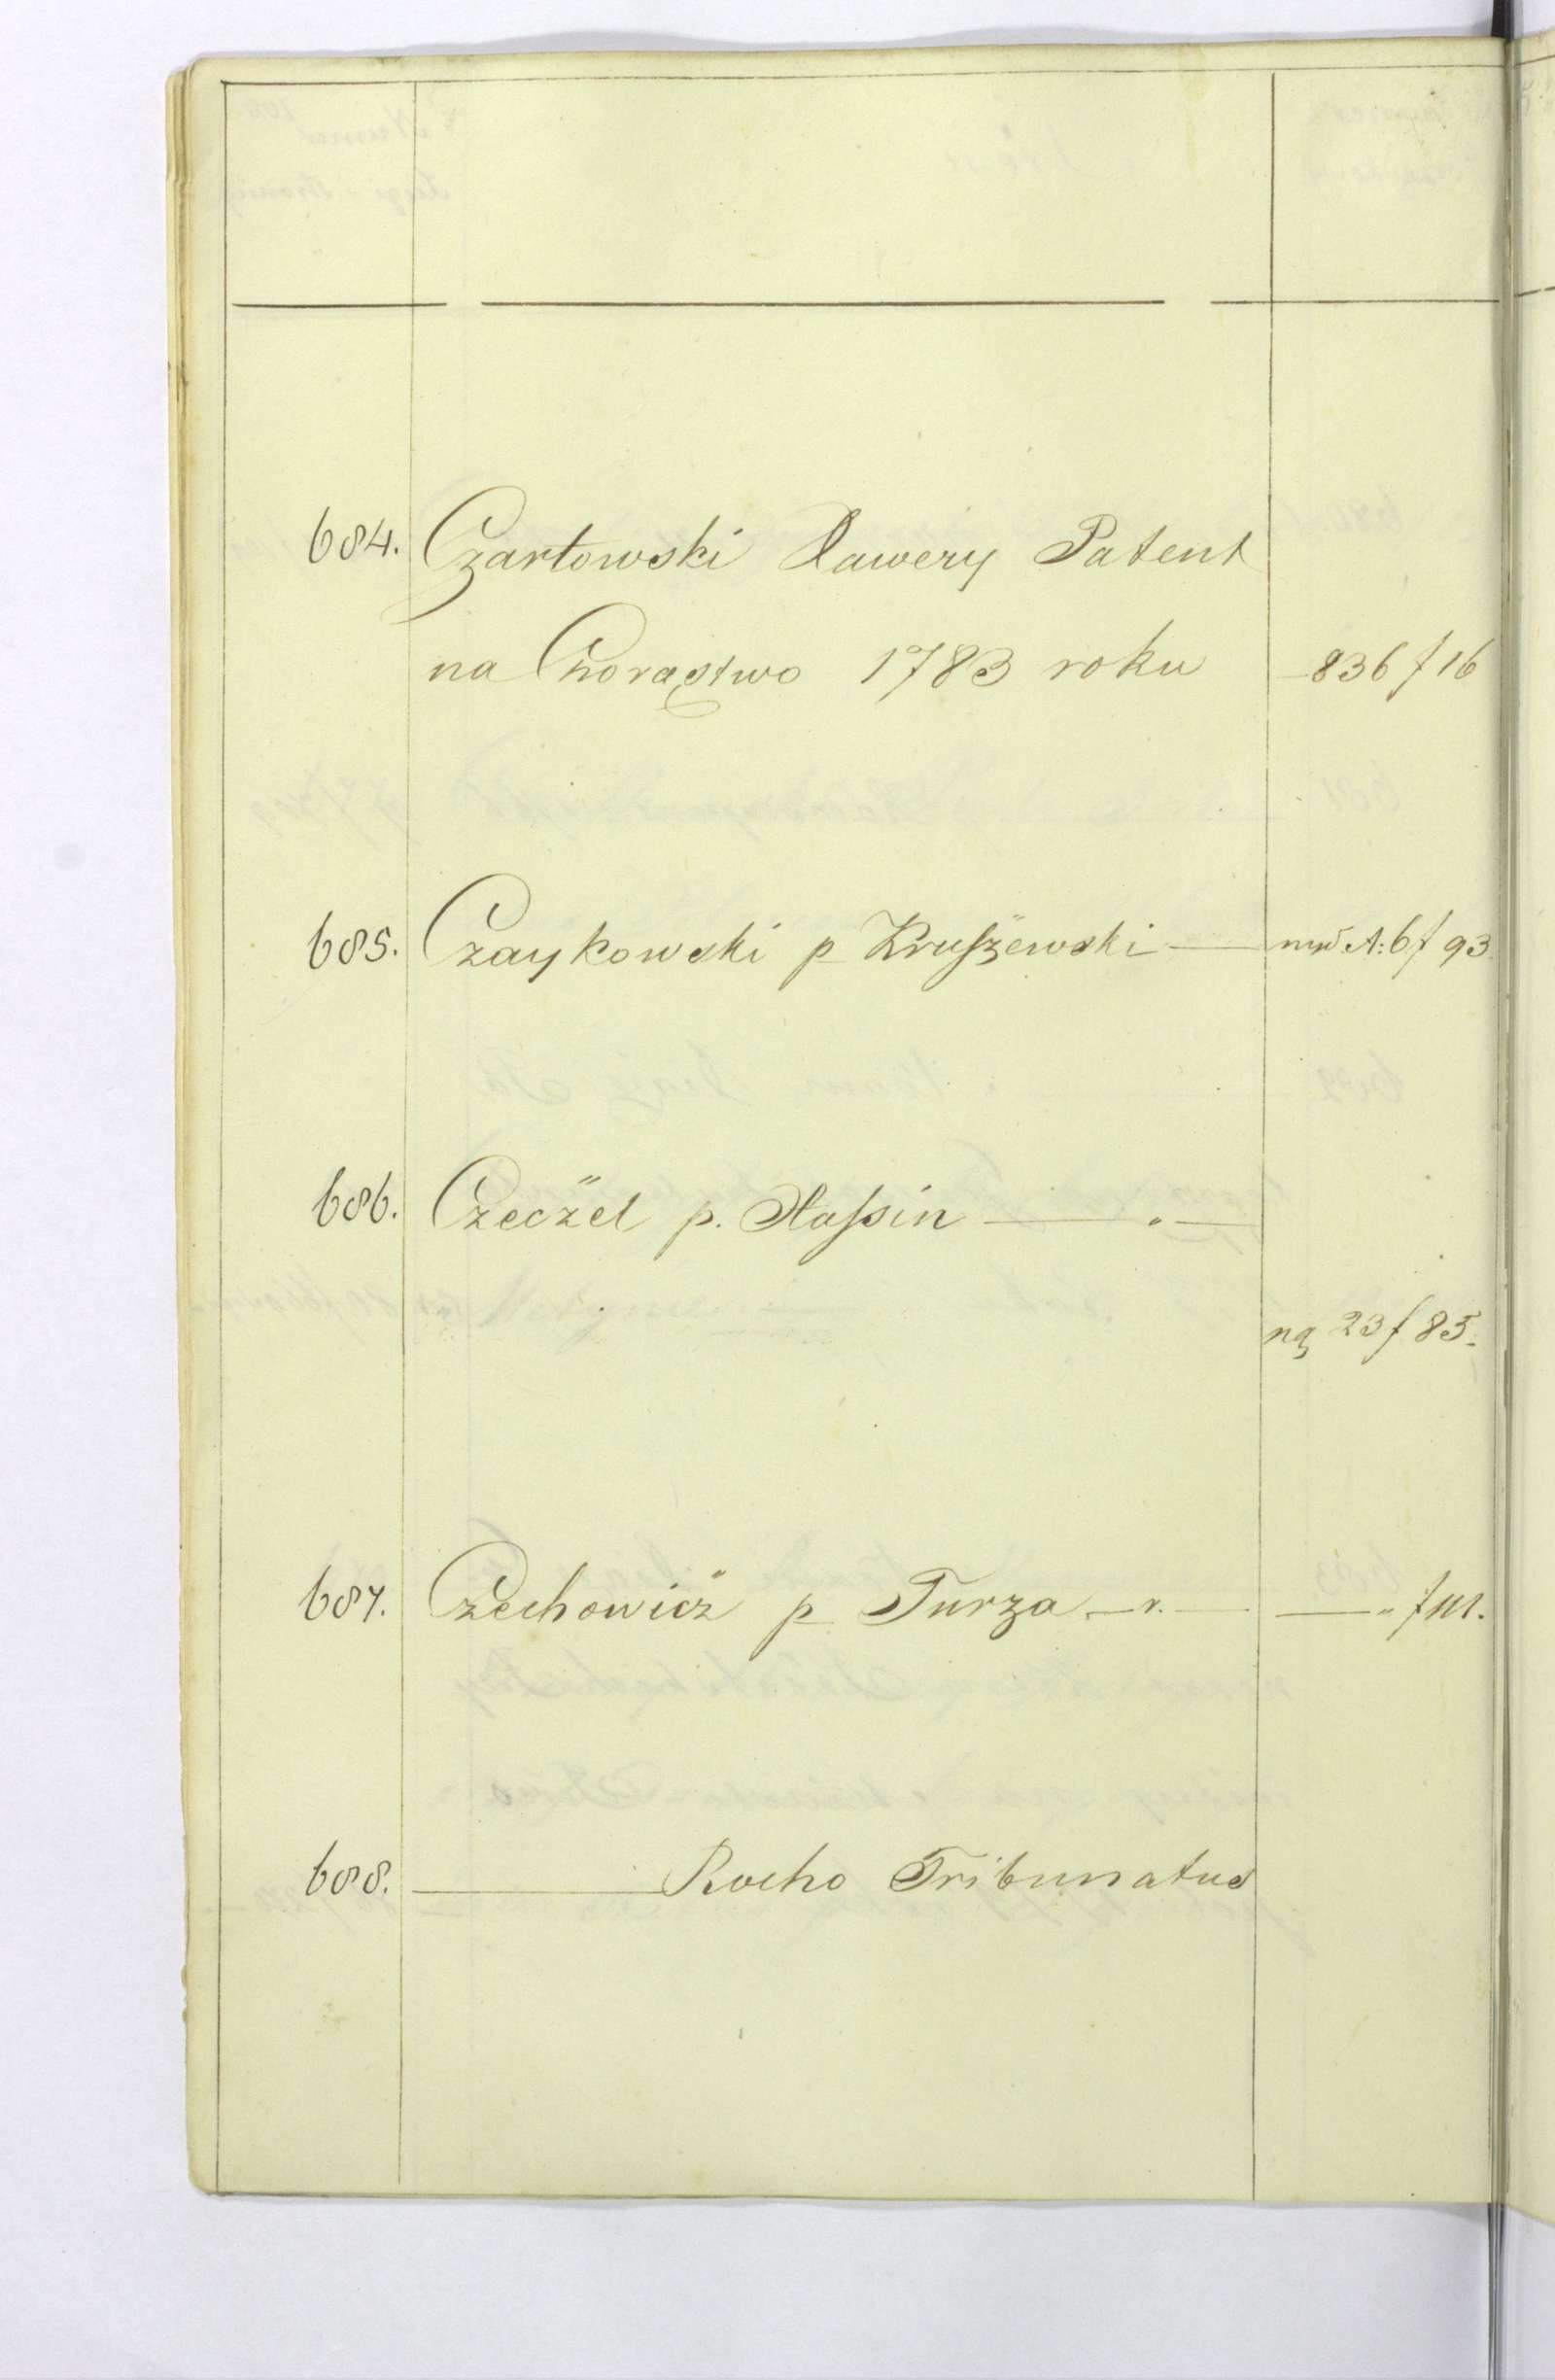 684. Czartowski Xawery Patent
na Chorąstwo 1783 roku — 836 f 16
685. Czaykowski p Kruszewski — A: 6 f 93
686. Czeczel p. — " —
ng 23 f 85.
687. Czechowicz p Turza — " — — " f 111.
688. — Rocho Tribunatus